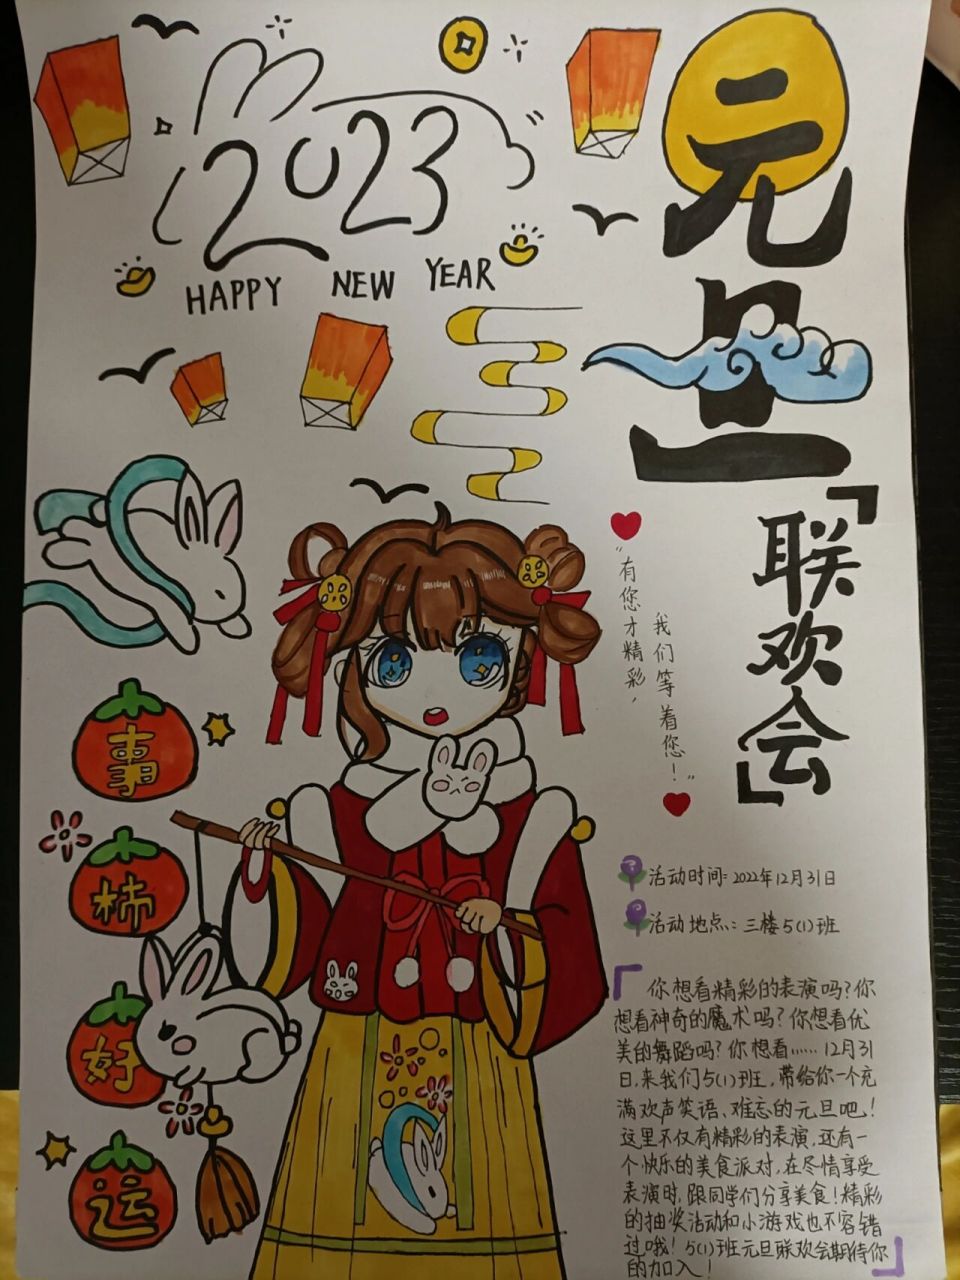 2023
HAPPY NEW YEAR
元
旦
「联欢会」
“有您才精彩，
我们等着您！”
事
柿
好
运
活动时间：2022年12月31日
活动地点：三楼5(1)班
「你想看精彩的表演吗？你
想看神奇的魔术吗？你想看优
美的舞蹈吗？你想看……12月31
日，来我们5(1)班，带给你一个充
满欢声笑语、难忘的元旦吧！
这里不仅有精彩的表演，还有一
个快乐的美食派对，在尽情享受
表演时，跟同学们分享美食！精彩
的抽奖活动和小游戏也不容错
过哦！5(1)班元旦联欢会期待你
的加入！」